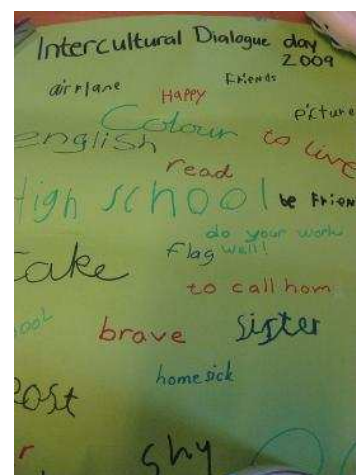 Intercultural Dialogue day
2009
airplane
Friends
HAPPY
picture
Colour
english
to live
read
High school
be Frien
do your work
well!
flag
cake
to call hom
ool
brave
sister
homesick
ost
shy
r